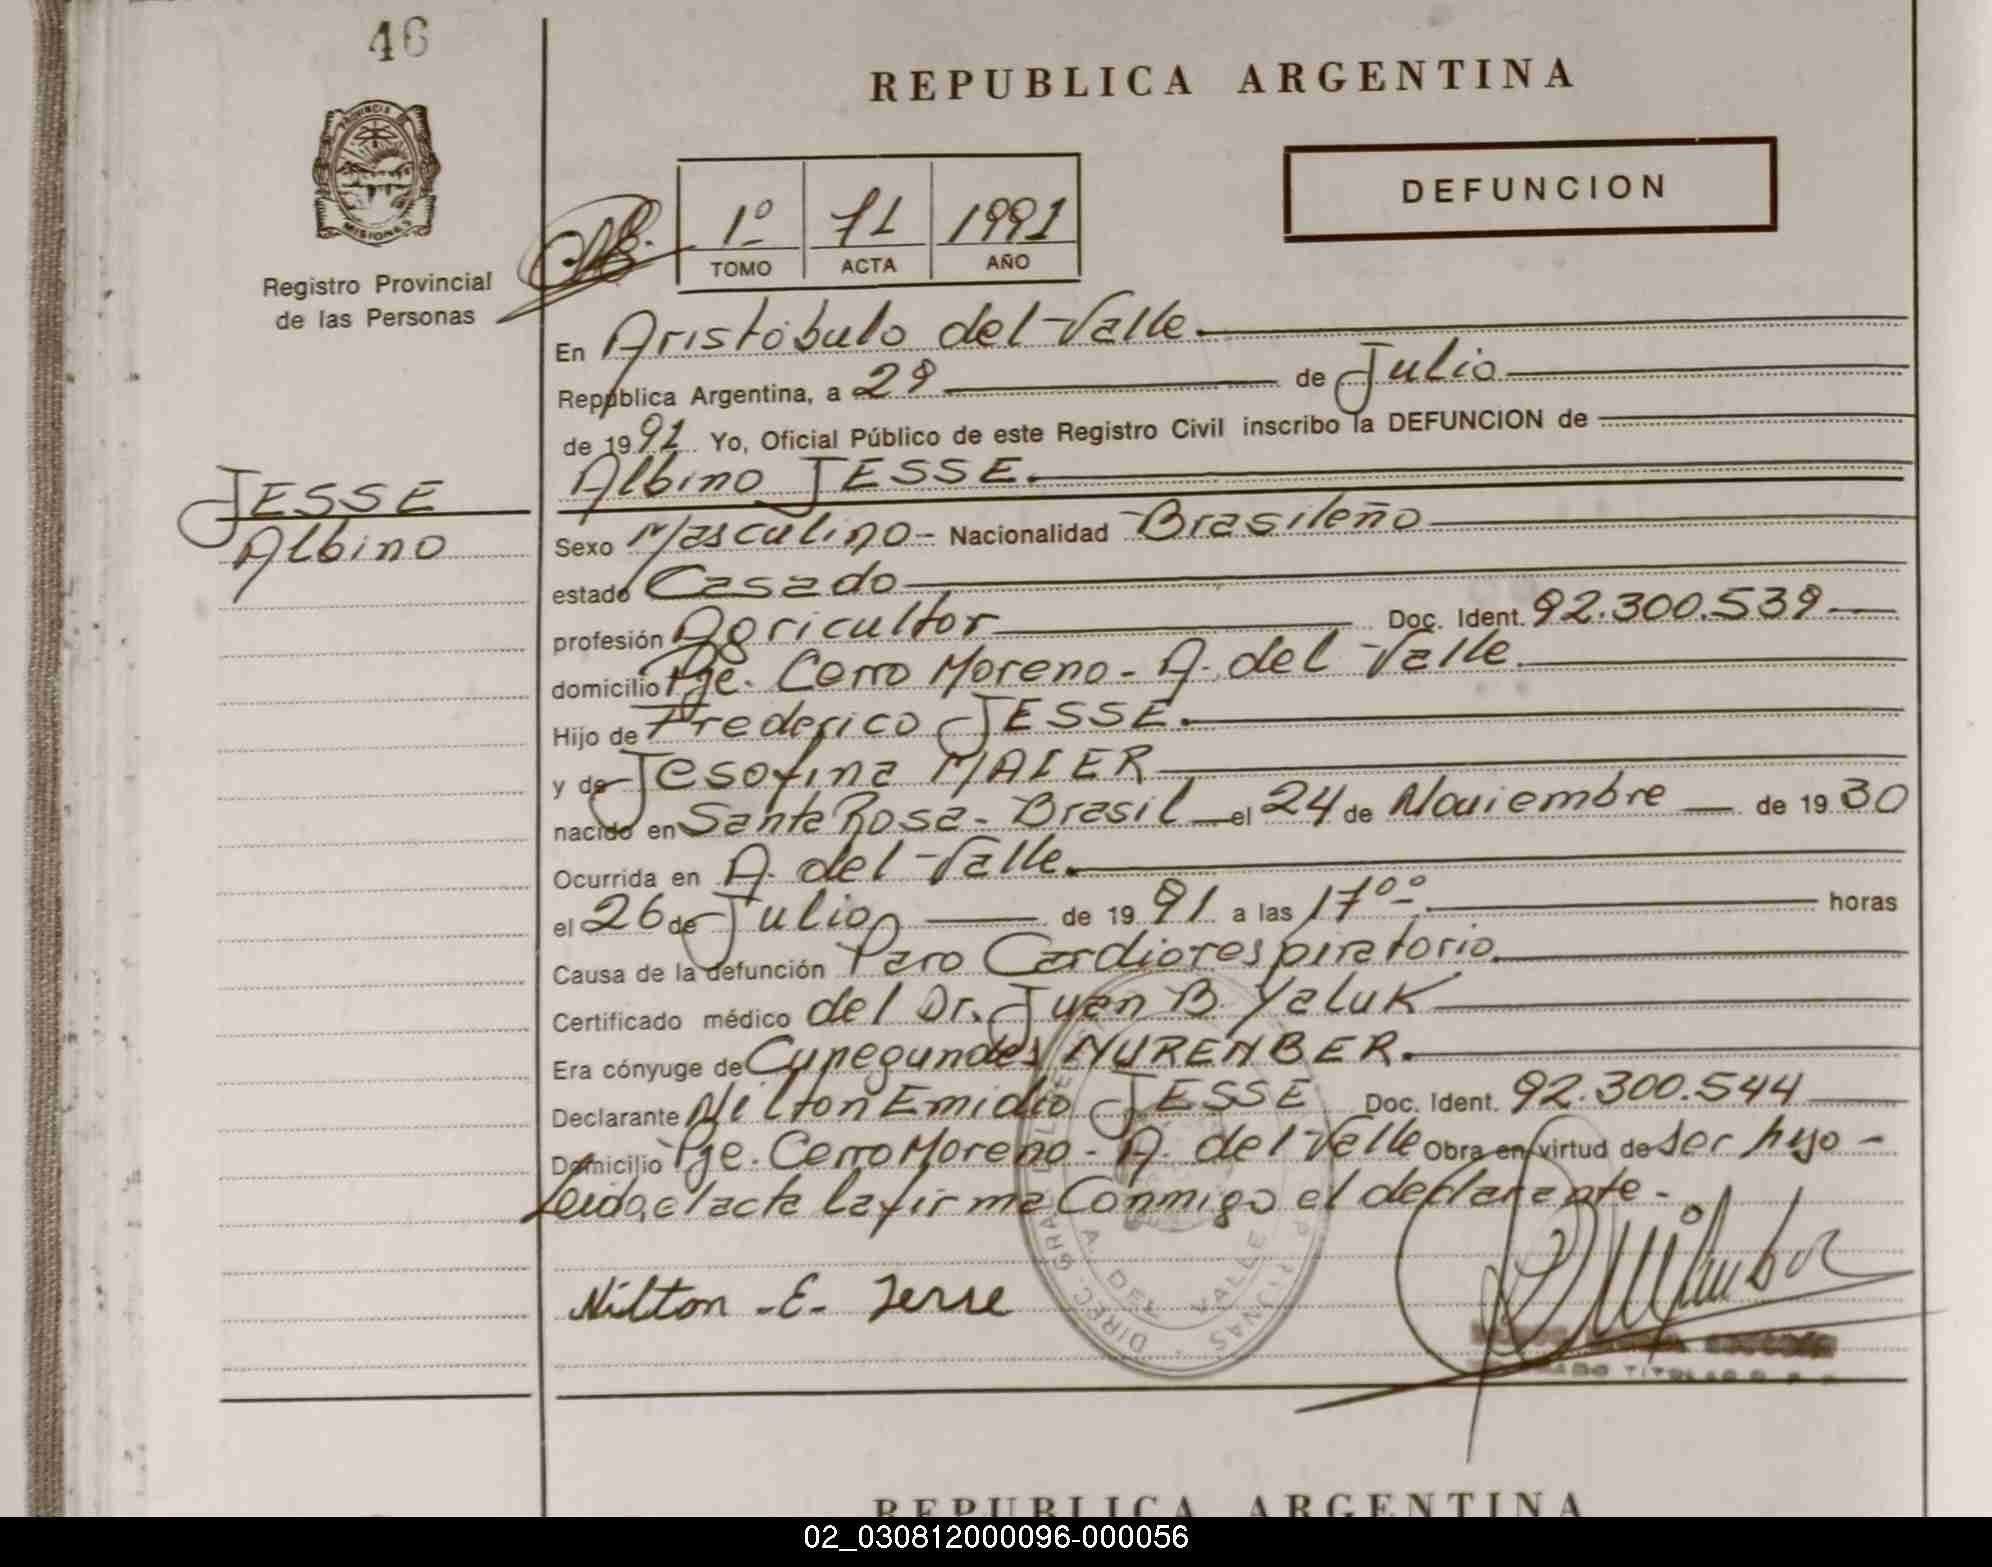 46
REPUBLICA ARGENTINA
PROVINCIA DE
MISIONES
DEFUNCION
1º 71 1991
TOMO ACTA AÑO
Registro Provincial
de las Personas
En Aristóbulo del Valle.
República Argentina, a 29 de Julio
de 1991 Yo, Oficial Público de este Registro Civil inscribo la DEFUNCION de
Albino JESSE.
JESSE
Albino
Sexo Masculino - Nacionalidad Brasileño
estado Casado
profesión Agricultor Doc. Ident. 92.300.539
domicilio Pje. Cerro Moreno - A. del Valle
Hijo de Frederico JESSE.
y de Jesofina MAIER
nacido en Santa Rosa - Brasil el 24 de Noviembre de 1930
Ocurrida en A. del Valle.
el 26 de Julio de 1991 a las 17°° horas
Causa de la defunción Paro Cardiorespiratorio.
Certificado médico del Dr. Juan B. Yaluk
Era cónyuge de Cunegundes NURENBER.
Declarante Nilton Emidio JESSE Doc. Ident. 92.300.544
Domicilio Pje. Cerro Moreno - A. del Valle Obra en virtud de ser hijo -
Leida, el acta la firma Conmigo el declarante -
Nilton - E - Jesse
A. DEL VALLE
REPUBLICA ARGENTINA
02_030812000096-000056